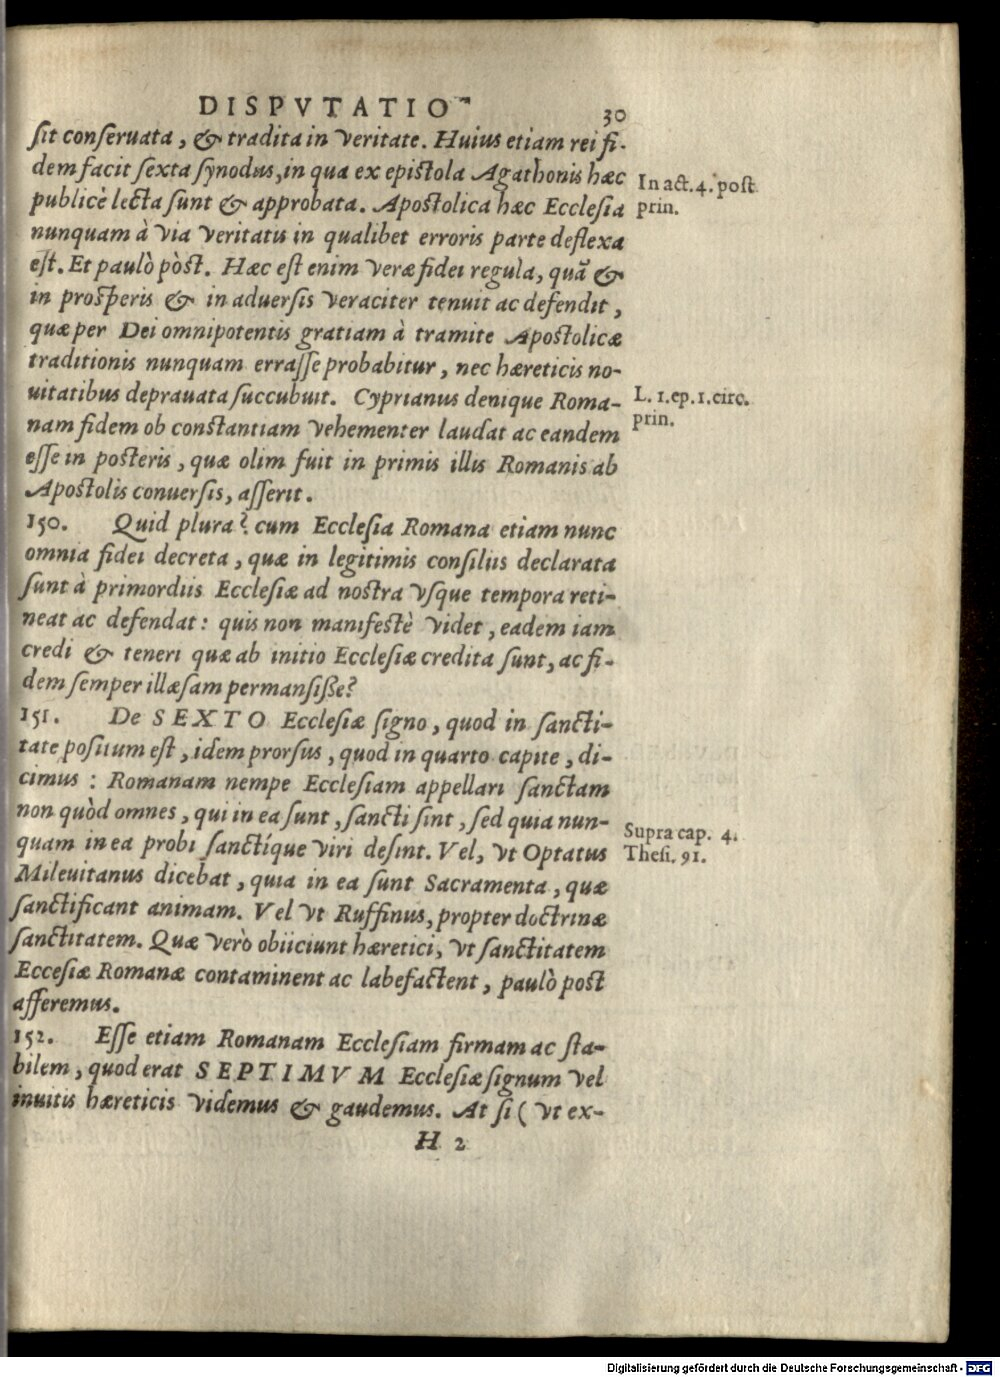 DISPVTATIO 30
sit conseruata, & tradita in veritate. Huius etiam rei fi-
dem facit sexta synodus, in qua ex epistola Agathonis hæc
In act. 4. post
publicè lecta sunt & approbata. Apostolica hæc Ecclesia
prin.
nunquam à via veritatis in qualibet erroris parte deflexa
est. Et paulò pòst. Hæc est enim veræ fidei regula, quã &
in prosperis & in aduersis veraciter tenuit ac defendit,
quæ per Dei omnipotentis gratiam à tramite Apostolicæ
traditionis nunquam errasse probabitur, nec hæreticis no-
uitatibus deprauata succubuit. Cyprianus denique Roma-
L. 1. ep. 1. circ.
nam fidem ob constantiam vehementer laudat ac eandem
prin.
esse in posteris, quæ olim fuit in primis illis Romanis ab
Apostolis conuersis, asserit.
150. Quid plura? cum Ecclesia Romana etiam nunc
omnia fidei decreta, quæ in legitimis consiliis declarata
sunt à primordiis Ecclesiæ ad nostra vsque tempora reti-
neat ac defendat: quis non manifestè videt, eadem iam
credi & teneri quæ ab initio Ecclesiæ credita sunt, ac fi-
dem semper illæsam permansisse?
151. De SEXTO Ecclesiæ signo, quod in sancti-
tate positum est, idem prorsus, quod in quarto capite, di-
cimus: Romanam nempe Ecclesiam appellari sanctam
non quòd omnes, qui in ea sunt, sancti sint, sed quia nun-
Supra cap. 4.
quam in ea probi sanctíque viri desint. Vel, vt Optatus
Thesi. 91.
Mileuitanus dicebat, quia in ea sunt Sacramenta, quæ
sanctificant animam. Vel vt Ruffinus, propter doctrinæ
sanctitatem. Quæ verò obiiciunt hæretici, vt sanctitatem
Eccesiæ Romanæ contaminent ac labefactent, paulò post
afferemus.
152. Esse etiam Romanam Ecclesiam firmam ac sta-
bilem, quod erat SEPTIMVM Ecclesiæ signum vel
inuitis hæreticis videmus & gaudemus. At si (vt ex-
H 2
Digitalisierung gefördert durch die Deutsche Forschungsgemeinschaft - DFG